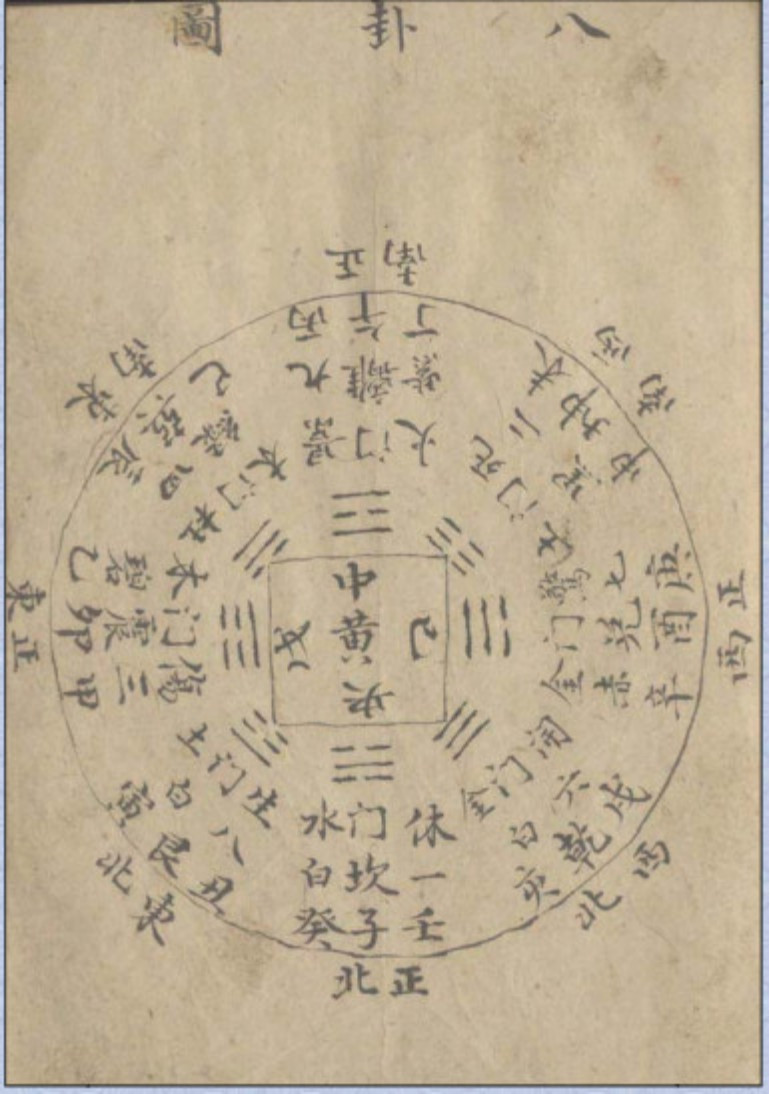 八卦圖
正南
丙午丁
九離紫
景门火
西南
未坤申
二黑
死门土
正西
庚酉辛
七兌赤
驚门金
西北
戌乾亥
六白
開门金
正北
壬子癸
一坎白
休门水
東北
丑艮寅
八白
生门土
正東
甲卯乙
三震碧
傷门木
東南
辰巽巳
四綠
杜门木
中黃央
戊
己